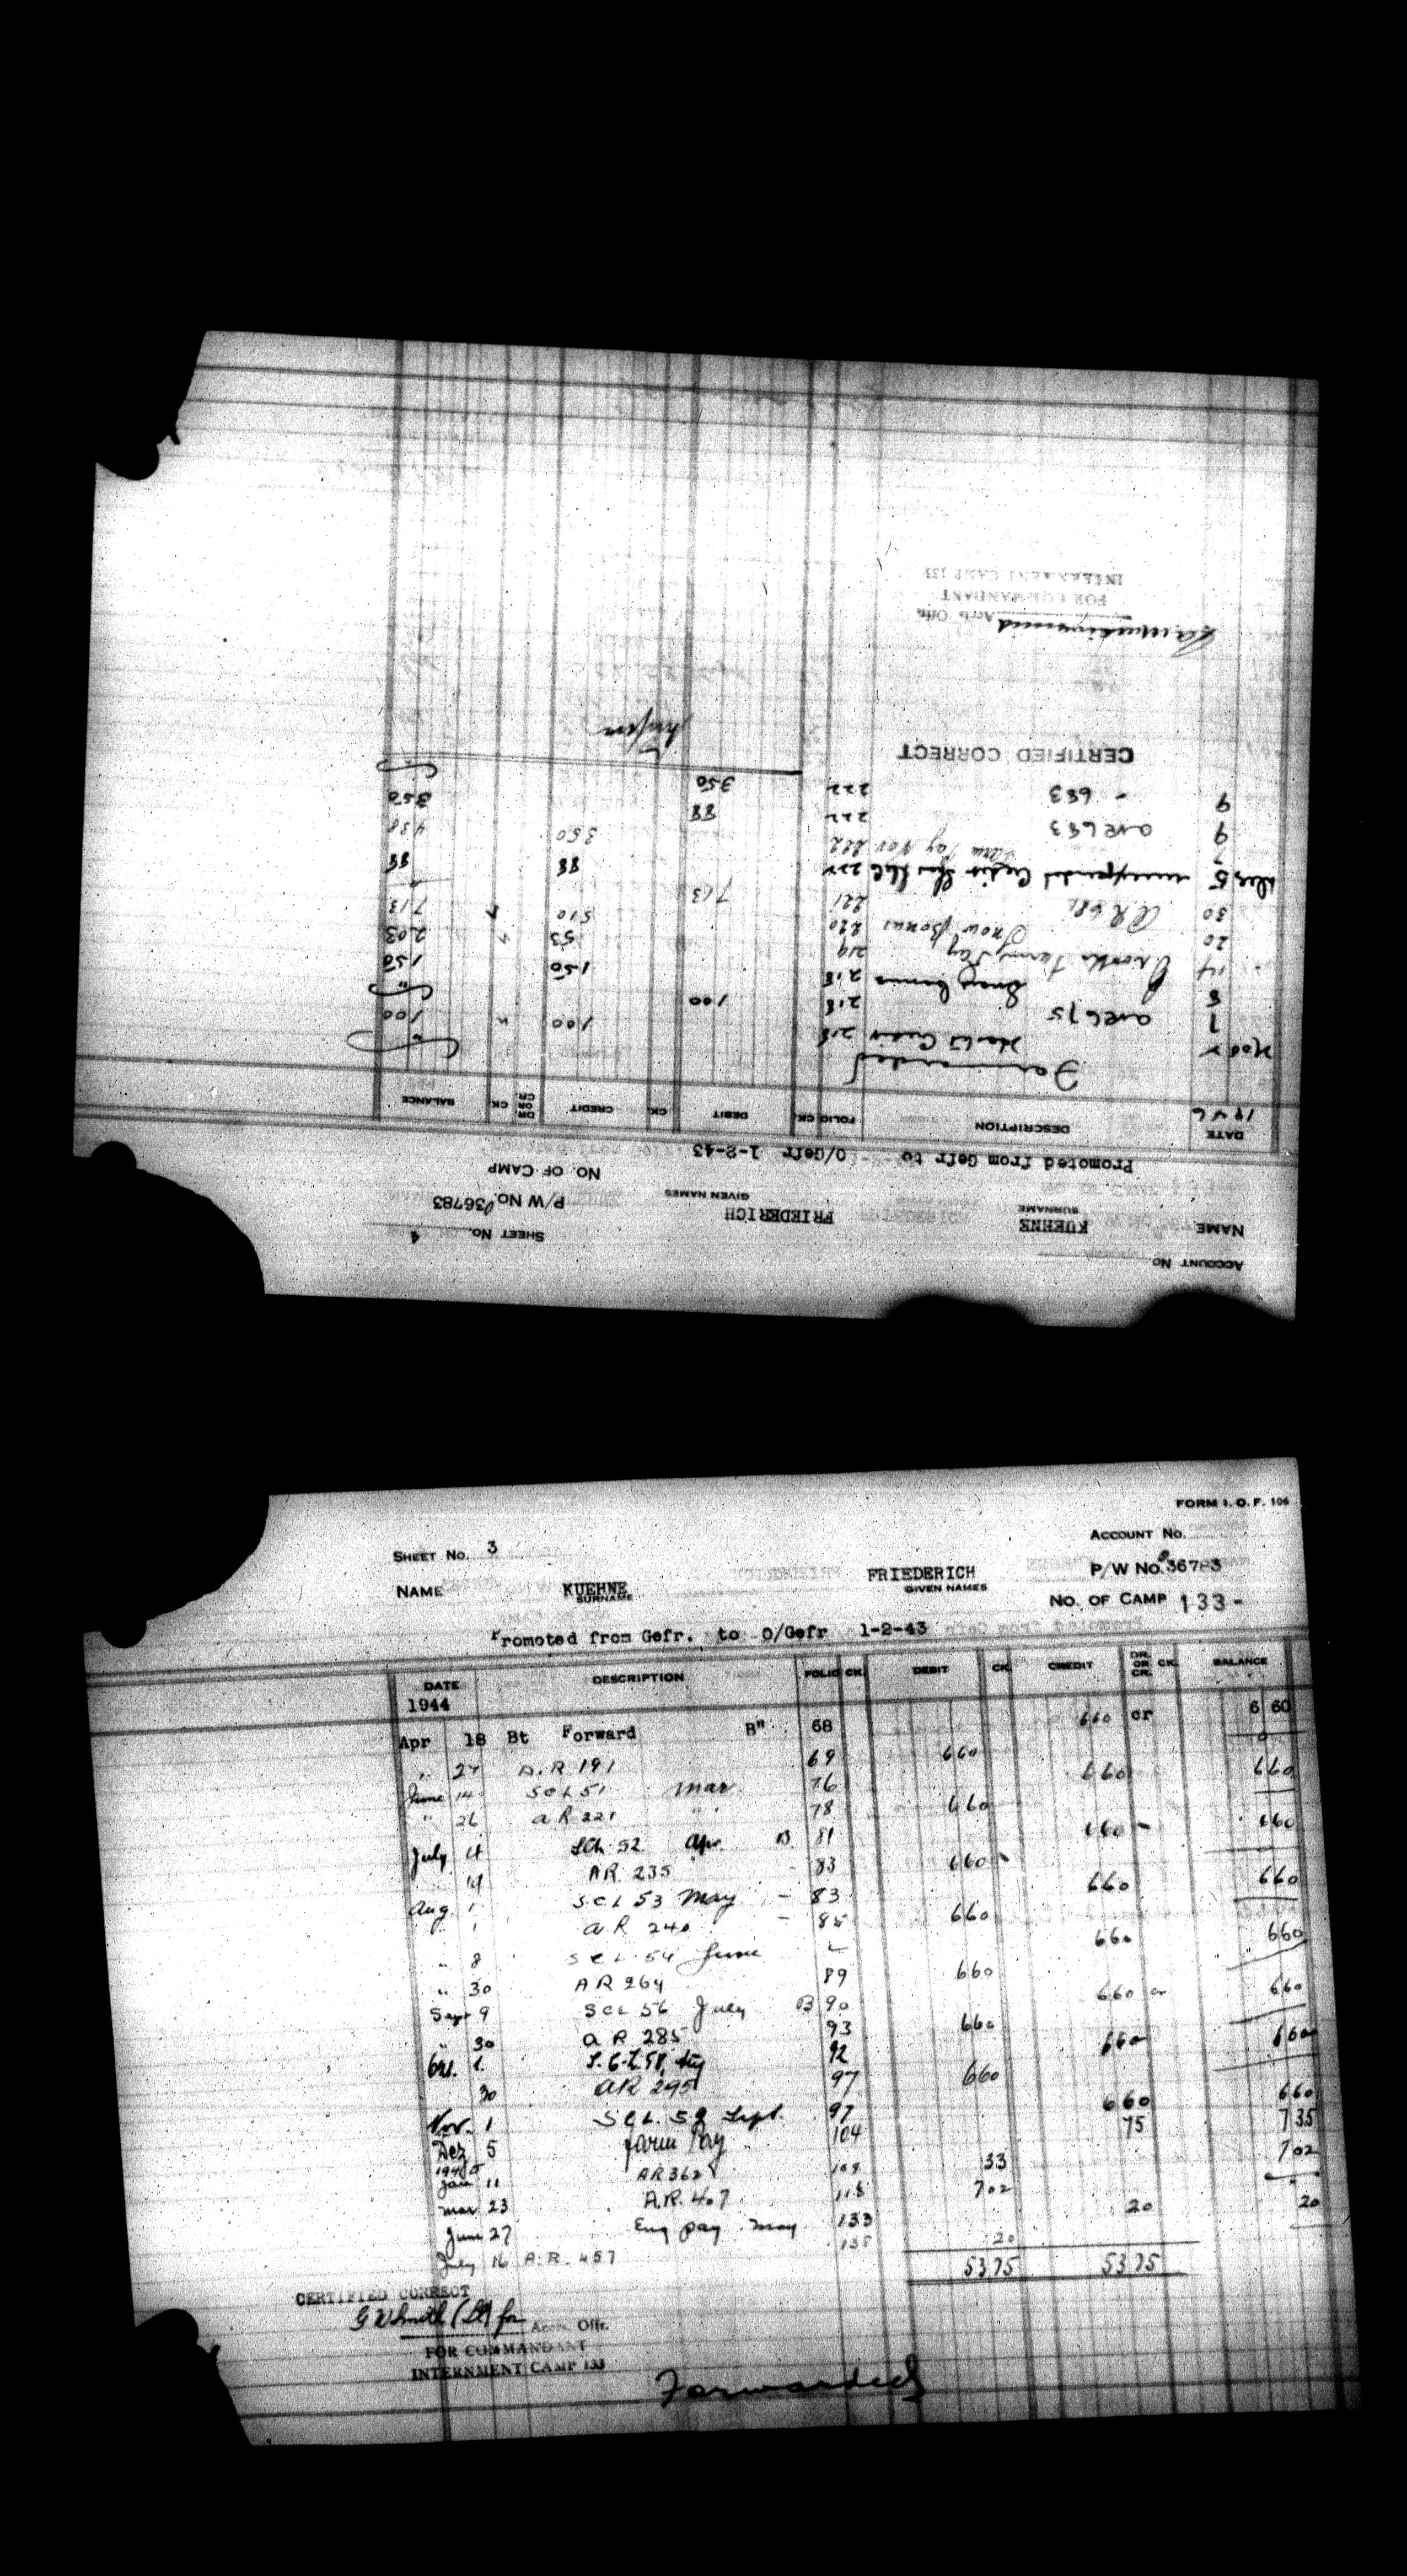 ACCOUNT No.
SHEET No. 4
NAME KUEHNE FRIEDERICH P/W No. 036783
SURNAME GIVEN NAMES
NO. OF CAMP
Promoted from Gefr to O/Gefr 1-2-43
DATE DESCRIPTION FOLIO CK. DEBIT CK. CREDIT DR. OR CR. CK. BALANCE
1946
Forwarded
Nov 2 Credit 218 100 100
7 AR 675 218 100
8 218 1.50 1.50
14 Farm Pay 219 53 203
20 Snow Bonus 220 510 713
30 A.R. 681 221 713
Dec 5 unexpended Credit 222 88 88
7 Farm Pay Nov 222 350 438
9 AR 683 222 88 350
9 " 683 222 350
CERTIFIED CORRECT
Accts. Offr.
FOR COMMANDANT
INTERNMENT CAMP 133
FORM I. O. F. 106
SHEET No. 3 ACCOUNT No.
NAME KUEHNE FRIEDERICH P/W No. 036783
SURNAME GIVEN NAMES
NO. OF CAMP 133-
Promoted from Gefr. to O/Gefr 1-2-43
DATE DESCRIPTION FOLIO CK. DEBIT CK. CREDIT DR. OR CR. CK. BALANCE
1944
Apr 18 Bt Forward B" 68 660 cr 6 60
" 27 A.R 191 69 660 0
June 14 SCL 51 Mar 76 660 660
" 26 AR 221 " 78 660
July 4 SCL 52 Apr. B 81 660 660
19 AR 235 - 83 660
Aug. 1 SCL 53 May - 83 660 660
1 AR 240 - 85 660
" 8 SCL 54 June 660 660
" 30 AR 264 89 660
Sept 9 SCL 56 July B 90 660 cr 660
" 30 AR 285 93 660
1. S.C.L 58 92 660 660
30 AR 295 97 660
Nov. 1 SCL. 59 Sept. 97 660 660
Dez 5 Farm Pay 104 75 735
1945
Jan 11 AR 362 109 33 702
Mar. 23 A.R. 407 118 702
June 27 Eng pay May 133 20 20
July 16 A.R. 457 138 20
5375 5375
CERTIFIED CORRECT
G W Smith (Lt) for Accts. Offr.
FOR COMMANDANT
INTERNMENT CAMP 133
Forwarded